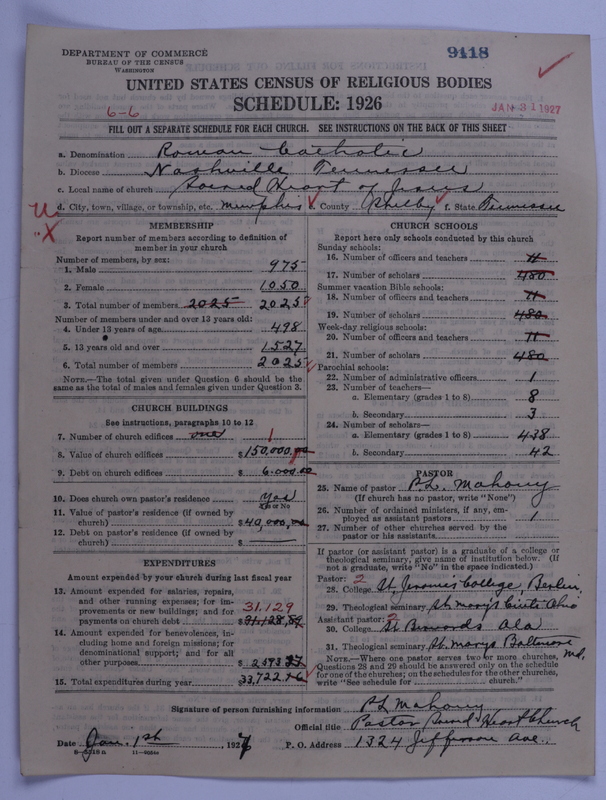 DEPARTMENT OF COMMERCE
BUREAU OF THE CENSUS
WASHINGTON
9118
UNITED STATES CENSUS OF RELIGIOUS BODIES
SCHEDULE: 1926
6-6
JAN 31 1927
FILL OUT A SEPARATE SCHEDULE FOR EACH CHURCH. SEE INSTRUCTIONS ON THE BACK OF THIS SHEET
a. Denomination Roman Catholic
b. Diocese Nashville Tennessee
c. Local name of church Sacred Heart of Jesus
d. City, town, village, or township, etc. Memphis e. County Shelby f. State Tennessee
MEMBERSHIP
Report number of members according to definition of
member in your church
Number of members, by sex:
1. Male 975
2. Female 1050
3. Total number of members 2025 2025
Number of members under and over 13 years old:
4. Under 13 years of age 498
5. 13 years old and over 1.527
6. Total number of members 2025
NOTE.—The total given under Question 6 should be the
same as the total of males and females given under Question 3.
CHURCH BUILDINGS
See instructions, paragraphs 10 to 12
7. Number of church edifices one 1
8. Value of church edifices $150,000.00
9. Debt on church edifices $ 6.000.00
10. Does church own pastor's residence Yes
Yes or No
11. Value of pastor's residence (if owned by
church) $40,000.00
12. Debt on pastor's residence (if owned by
church) $
EXPENDITURES
Amount expended by your church during last fiscal year
13. Amount expended for salaries, repairs,
and other running expenses; for im-
provements or new buildings; and for
payments on church debt 31.129
$31,128.89
14. Amount expended for benevolences, in-
cluding home and foreign missions; for
denominational support; and for all
other purposes $ 2593
15. Total expenditures during year 33,722
CHURCH SCHOOLS
Report here only schools conducted by this church
Sunday schools:
16. Number of officers and teachers 11
17. Number of scholars 480
Summer vacation Bible schools:
18. Number of officers and teachers 11
19. Number of scholars 480
Week-day religious schools:
20. Number of officers and teachers 11
21. Number of scholars 480
Parochial schools:
22. Number of administrative officers 1
23. Number of teachers—
a. Elementary (grades 1 to 8) 8
b. Secondary 3
24. Number of scholars—
a. Elementary (grades 1 to 8) 438
b. Secondary 42
PASTOR
25. Name of pastor P.L. Mahony
(If church has no pastor, write "None")
26. Number of ordained ministers, if any, em-
ployed as assistant pastors 1
27. Number of other churches served by the
pastor or his assistants
If pastor (or assistant pastor) is a graduate of a college or
theological seminary, give name of institution below. (If
not a graduate, write "No" in the space indicated.)
Pastor: 2
28. College St Jerome's College, Berlin
29. Theological seminary St Mary's Cinti Ohio
Assistant pastor: 2
30. College St Bernards Ala
31. Theological seminary St Marys Baltimore Md.
NOTE.—Where one pastor serves two or more churches,
Questions 28 and 29 should be answered only on the schedule
for one of the churches; on the schedules for the other churches,
write "See schedule for church."
Signature of person furnishing information P L Mahony
Official title Pastor Sacred Heart Church
Date Jan. 1st, 1927 P. O. Address 1324 Jefferson Ave.